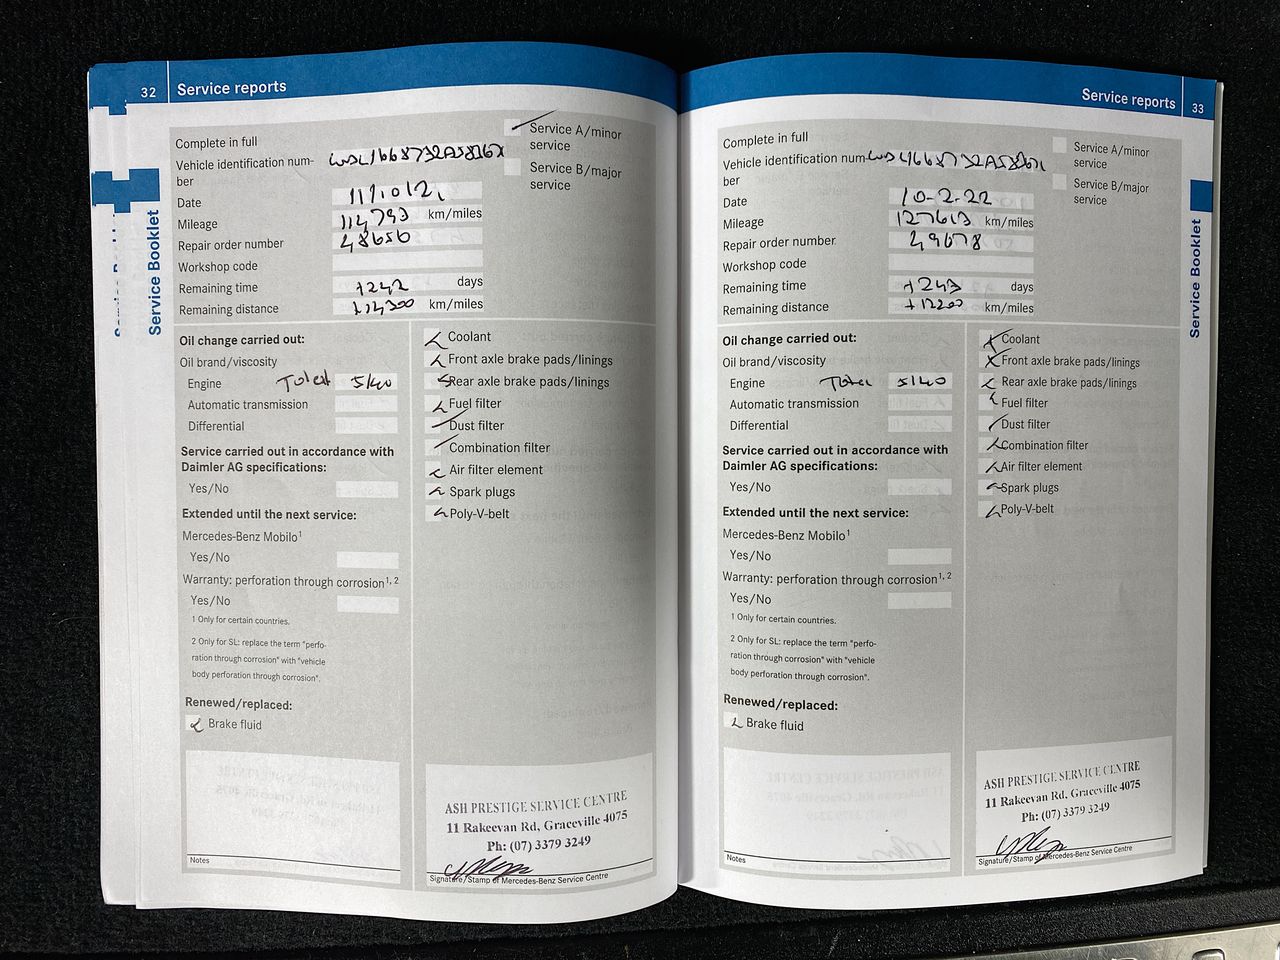 32 Service reports
Complete in full
Service A/minor
service
Vehicle identification num-
ber
Service B/major
service
Date
Mileage 114793 km/miles
Repair order number 48656
Workshop code
Remaining time +242 days
Remaining distance +14300 km/miles
Oil change carried out:
Oil brand/viscosity
Engine Total 5/40
Automatic transmission
Differential
Service carried out in accordance with
Daimler AG specifications:
Yes/No
Extended until the next service:
Mercedes-Benz Mobilo1
Yes/No
Warranty: perforation through corrosion1, 2
Yes/No
1 Only for certain countries.
2 Only for SL: replace the term "perfo-
ration through corrosion" with "vehicle
body perforation through corrosion".
Renewed/replaced:
Brake fluid
Notes
Coolant
Front axle brake pads/linings
Rear axle brake pads/linings
Fuel filter
Dust filter
Combination filter
Air filter element
Spark plugs
Poly-V-belt
ASH PRESTIGE SERVICE CENTRE
11 Rakeevan Rd, Graceville 4075
Ph: (07) 3379 3249
Signature/Stamp of Mercedes-Benz Service Centre
Service Booklet
Service reports 33
Complete in full
Service A/minor
service
Vehicle identification num-
ber
Service B/major
service
Date 10-2-22
Mileage 127613 km/miles
Repair order number 49678
Workshop code
Remaining time +243 days
Remaining distance +12200 km/miles
Oil change carried out:
Oil brand/viscosity
Engine Total 5/40
Automatic transmission
Differential
Service carried out in accordance with
Daimler AG specifications:
Yes/No
Extended until the next service:
Mercedes-Benz Mobilo1
Yes/No
Warranty: perforation through corrosion1, 2
Yes/No
1 Only for certain countries.
2 Only for SL: replace the term "perfo-
ration through corrosion" with "vehicle
body perforation through corrosion".
Renewed/replaced:
Brake fluid
Notes
Coolant
Front axle brake pads/linings
Rear axle brake pads/linings
Fuel filter
Dust filter
Combination filter
Air filter element
Spark plugs
Poly-V-belt
ASH PRESTIGE SERVICE CENTRE
11 Rakeevan Rd, Graceville 4075
Ph: (07) 3379 3249
Signature/Stamp of Mercedes-Benz Service Centre
Service Booklet